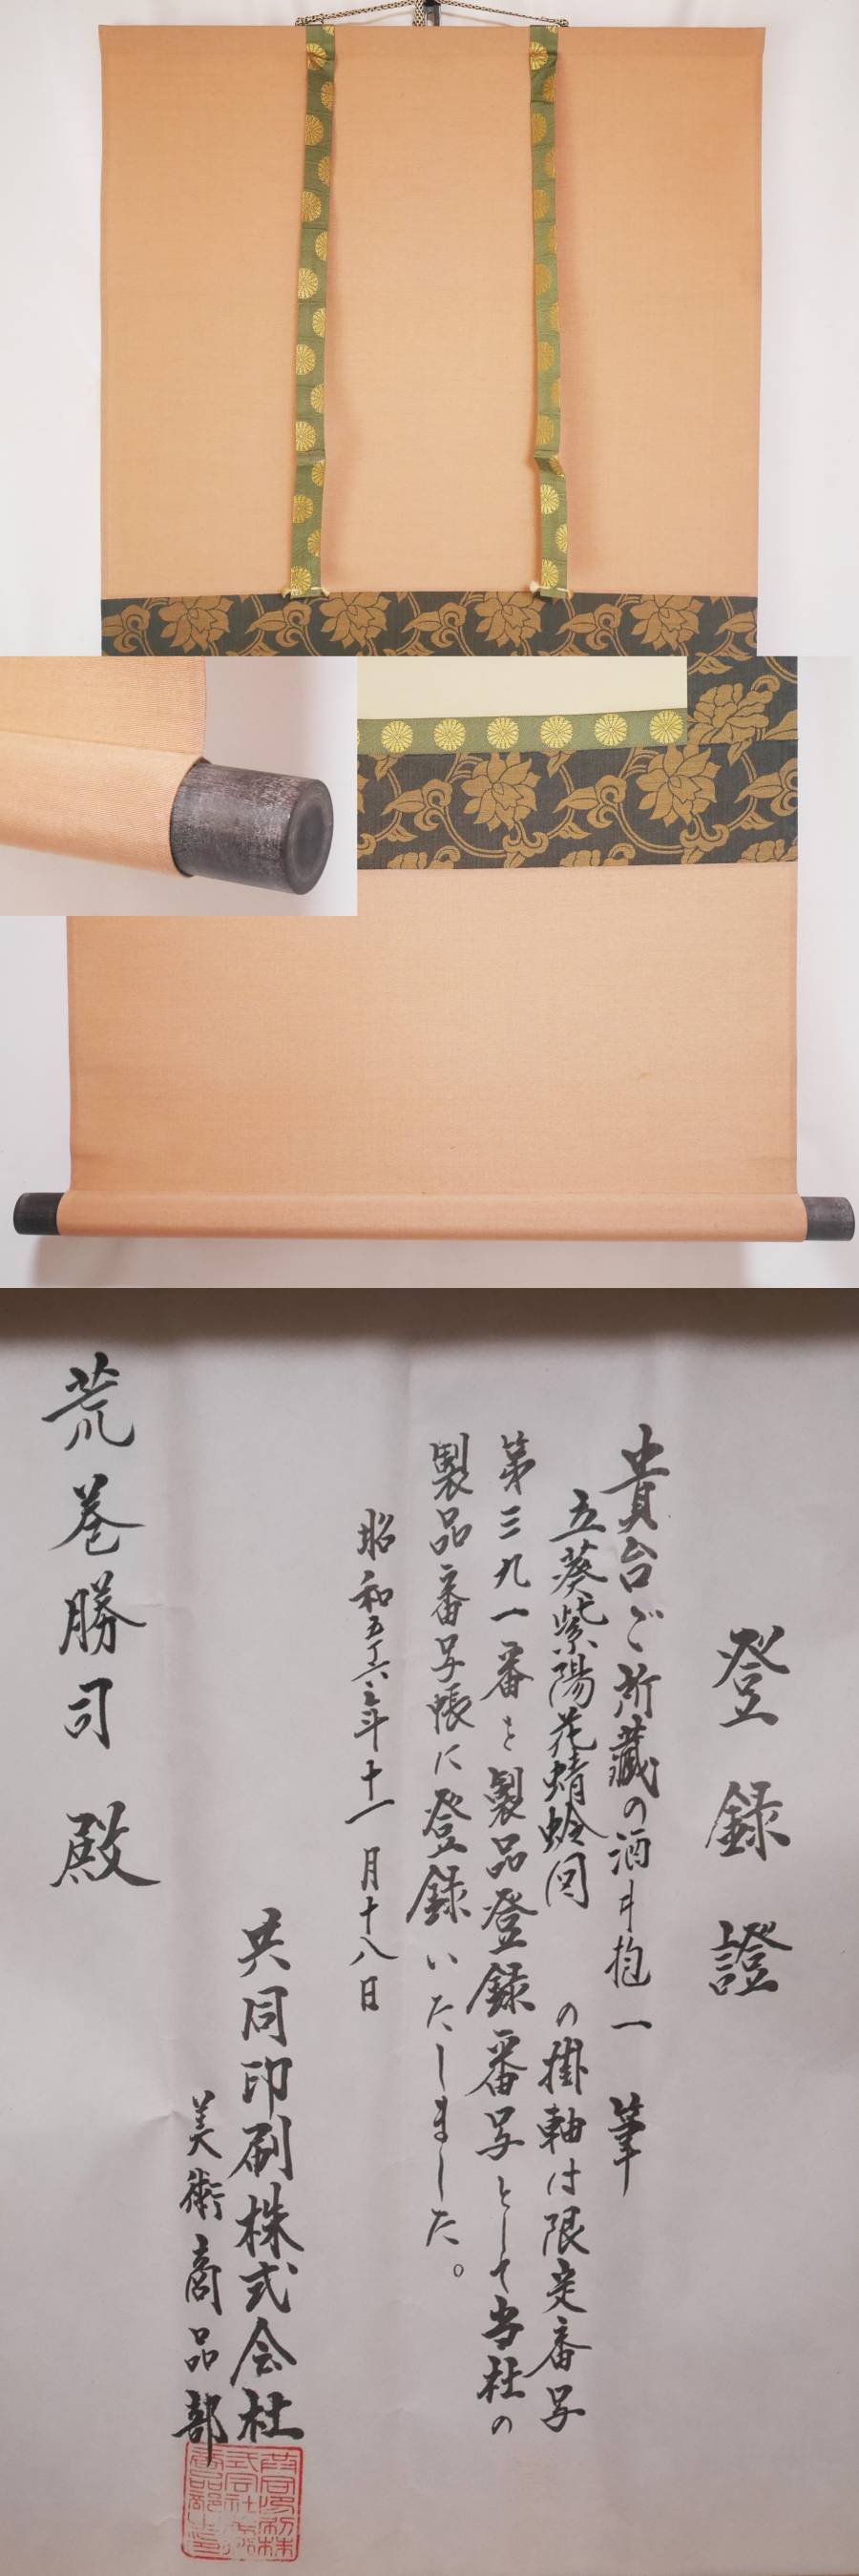 登録證
貴台ご所蔵の酒井抱一 筆
立葵紫陽花蜻蛉図 の掛軸は限定番号
第三九一番を製品登録番号として当社の
製品番号帳に登録いたしました。
昭和五十六年十一月十八日
共同印刷株式会社
美術商品部
荒巻勝司 殿